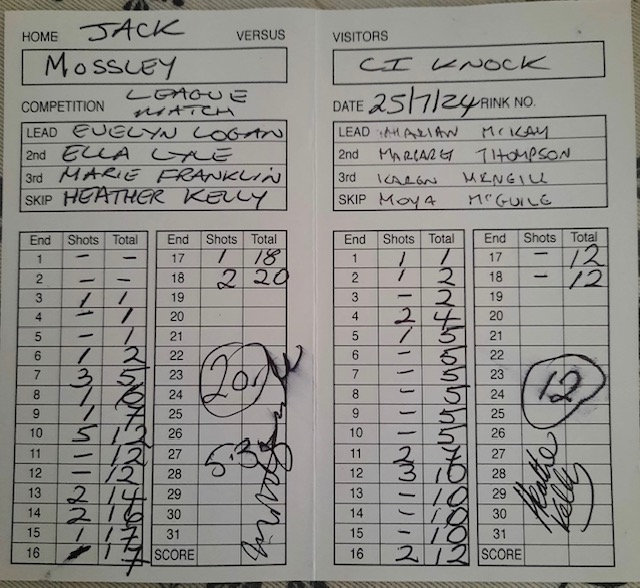 HOME JACK VERSUS
MOSSLEY
COMPETITION LEAGUE MATCH
LEAD EVELYN LOGAN
2nd ELLA LYLE
3rd MARIE FRANKLIN
SKIP HEATHER KELLY
End Shots Total
1 - -
2 - -
3 1 1
4 - 1
5 - 1
6 1 2
7 3 5
8 1 6
9 1 7
10 5 12
11 - 12
12 - 12
13 2 14
14 2 16
15 1 17
16 - 17
End Shots Total
17 1 18
18 2 20
19
20
21
22
23 20
24
25
26
27 5.3
28
29
30
31
SCORE
VISITORS
CI KNOCK
DATE 25/7/24 RINK NO.
LEAD MARIAN MCKAY
2nd MARGARET THOMPSON
3rd KAREN MCNEILL
SKIP MOYA MCGUILE
End Shots Total
1 1 1
2 1 2
3 - 2
4 2 4
5 1 5
6 - 5
7 - 5
8 - 5
9 - 5
10 - 5
11 2 7
12 3 10
13 - 10
14 - 10
15 - 10
16 2 12
End Shots Total
17 - 12
18 - 12
19
20
21
22
23
24 12
25
26
27
28
29
30
31
SCORE
Heather Kelly